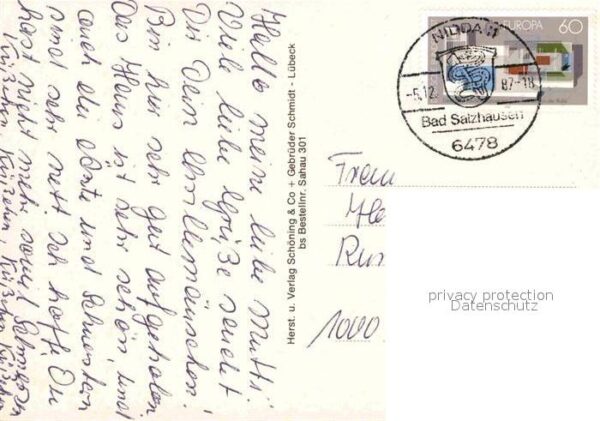 Hallo meine liebe Mutti!
Viele liebe Grüße sendet
Dir Dein
Bin hier sehr gut aufgehoben.
Das Haus ist sehr schön, und
auch die Ärzte und Schwestern
sind sehr nett. Ich hoffe Du
hast nicht mehr soviel Schmerzen
Küßchen Küßchen Küßchen Küßchen
Herst. u. Verlag Schöning & Co + Gebrüder Schmidt - Lübeck
bs Bestellnr. Sahau 301
EUROPA 60
NIDDA 11
-5.12. 87-18
Bad Salzhausen
6478
1000
privacy protection
Datenschutz